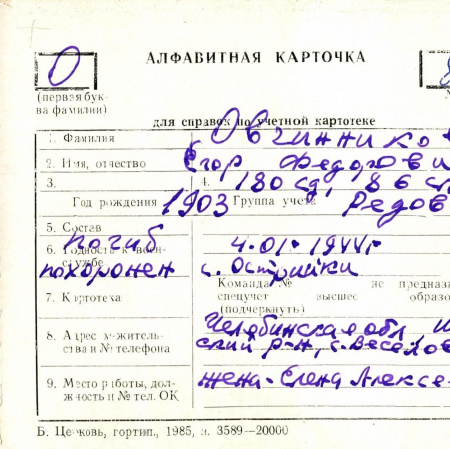 О
АЛФАВИТНАЯ КАРТОЧКА
(первая бук-
ва фамилии)
для справок по учетной картотеке
1. Фамилия Овчинников
2. Имя, отчество Егор Федорови
3. 4. 180 сд, 86 с
Год рождения 1903 Группа учета Рядов
5. Состав
погиб 4.01.1944г
6. Годность к воен-
ной службе
похоронен с. Острийки
Команда № не предназ
7. Картотека спецучет высшее образо
(подчеркнуть)
Челябинская обл
8. Адрес жительс-
тва и № телефона ский р-н, с. Весело
9. Место работы, дол-
жность и № тел. ОК жена - Елена Алексе
Б. Церковь, гортип., 1985, з. 3589—20000